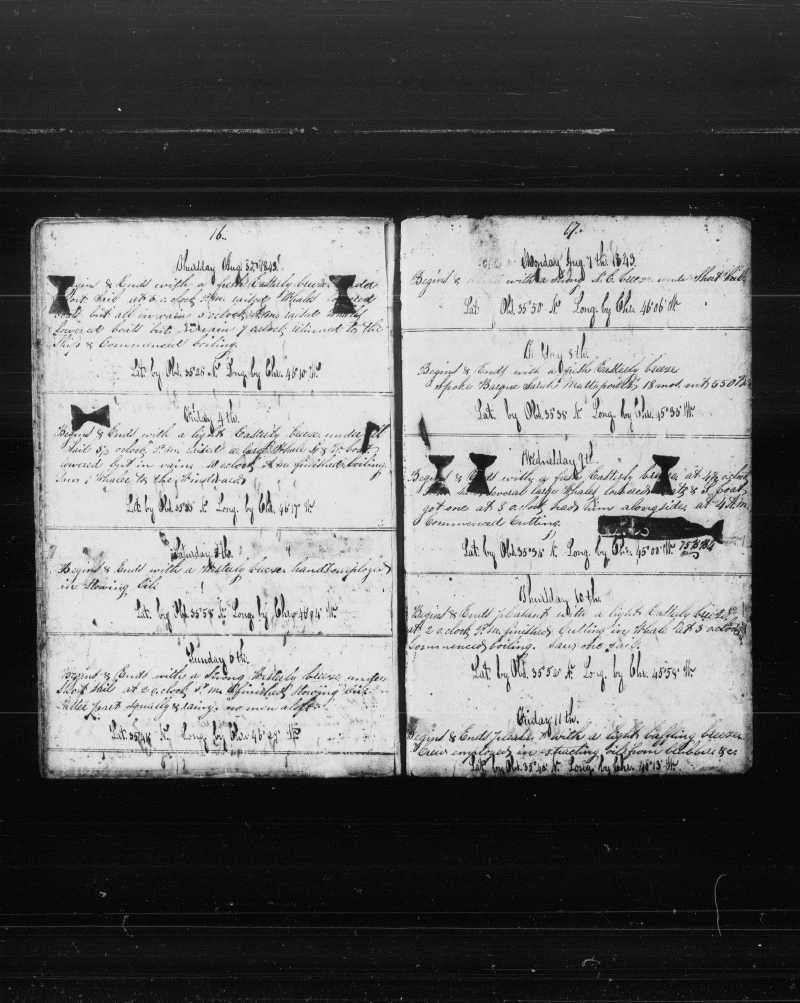 16.
Thursday Aug 3rd 1843.
Begins & Ends with a fresh Easterly breeze under
short sail at 5 oclock P.M. raised Whales lowered
boats but all in vain oclock A.M. raised Whales
lowered boats but in vain 9 oclock returned to the
Ship & Commenced boiling.
Lat by Obs. 35°25 N. Long. by Chr. 45°10 W.
Friday 4 th.
Begins & Ends with a light Easterly breeze under
sail oclock P.M. raised a large Whale boats
lowered but in vain. 10 oclock A.M. finished boiling.
Saw Whales to the Windward
Lat by Obs. N. Long. by Chr. 46°17 W.
Saturday 5 th.
Begins & Ends with a Westerly breeze hands employed
in stowing Oil
Lat. by Obs. 35°58 N. Long. by Chr. W.
Sunday 6 th.
Begins & Ends with a strong Westerly breeze under
Short Sail at 2 oclock P.M. finished Stowing
Latter part squally & rainy. no men aloft.
Lat. N. Long. by Chr. W.
17.
Monday Aug 7 th. 1843.
Begins & with a strong N.E. breeze under Short Sail
Lat. Obs. 35°50 N. Long. by Chr. 46°06 W.
8 th.
Begins & Ends with a fresh Easterly breeze
Spoke Barque Sarah Mattapoisett 18 mos. out 650
Lat by Obs. 35°38 N. Long. by Chr. 45°35 W.
Wednesday 9th.
Begins & Ends with a fresh Easterly breeze at 4½ oclock
several large Whales lowered boats & boat
got one at 8 oclock had him alongside. at 4 A.M.
Commenced Cutting.
Lat. by Obs. 35°34 N. Long. by Chr. 45°05 W. 75 Bbls
Thursday 10 th.
Begins & Ends pleasant with a light Easterly breeze
at 2 oclock P.M. finished Cutting in Whale at 3 oclock
Commenced boiling. Saw one Sail.
Lat. by Obs. 35°52 N. Long. by Chr. 45°58 W.
Friday 11 th.
Begins & Ends pleasant with a light baffling breeze
Crew employed in extracting oil from blubber &c
Lat. by Obs. 35°40 N. Long. by Chr. 46°13 W.